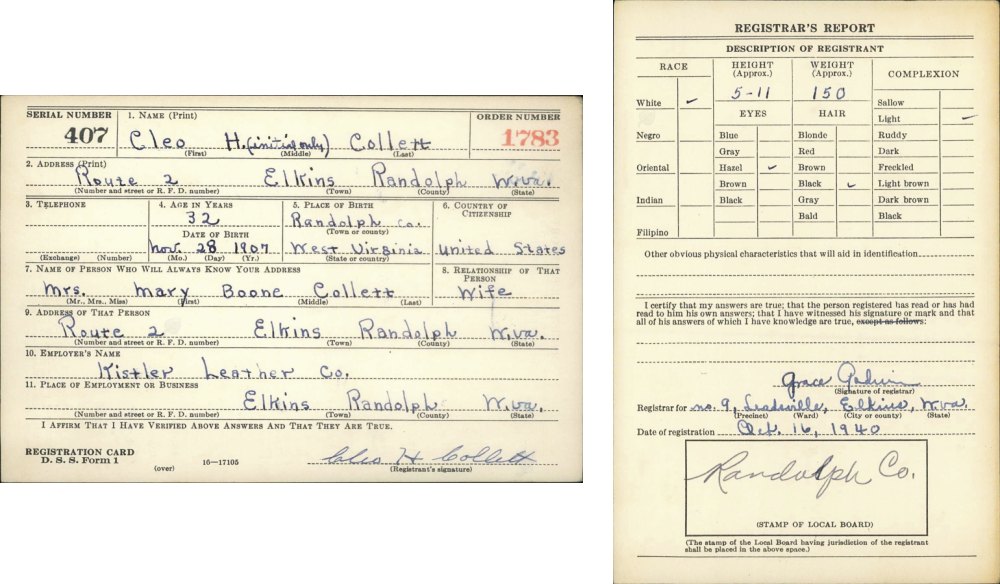 SERIAL NUMBER
407
1. NAME (Print)
Cleo H. (initial only) Collett
(First) (Middle) (Last)
ORDER NUMBER
1783
2. ADDRESS (Print)
Route 2 Elkins Randolph W.Va.
(Number and street or R. F. D. number) (Town) (County) (State)
3. TELEPHONE
(Exchange) (Number)
4. AGE IN YEARS
32
DATE OF BIRTH
Nov. 28 1907
(Mo.) (Day) (Yr.)
5. PLACE OF BIRTH
Randolph Co.
(Town or county)
West Virginia
(State or country)
6. COUNTRY OF
CITIZENSHIP
United States
7. NAME OF PERSON WHO WILL ALWAYS KNOW YOUR ADDRESS
Mrs. Mary Boone Collett
(Mr., Mrs., Miss) (First) (Middle) (Last)
8. RELATIONSHIP OF THAT
PERSON
Wife
9. ADDRESS OF THAT PERSON
Route 2 Elkins Randolph W.Va.
(Number and street or R. F. D. number) (Town) (County) (State)
10. EMPLOYER'S NAME
Kistler Leather Co.
11. PLACE OF EMPLOYMENT OR BUSINESS
Elkins Randolph W.Va.
(Number and street or R. F. D. number) (Town) (County) (State)
I AFFIRM THAT I HAVE VERIFIED ABOVE ANSWERS AND THAT THEY ARE TRUE.
REGISTRATION CARD
D. S. S. Form 1
(over)
16—17105
Cleo H Collett
(Registrant's signature)
REGISTRAR'S REPORT
DESCRIPTION OF REGISTRANT
RACE
White ✓
Negro
Oriental
Indian
Filipino
HEIGHT
(Approx.)
5-11
WEIGHT
(Approx.)
150
EYES
Blue
Gray
Hazel ✓
Brown
Black
HAIR
Blonde
Red
Brown
Black ✓
Gray
Bald
COMPLEXION
Sallow
Light ✓
Ruddy
Dark
Freckled
Light brown
Dark brown
Black
Other obvious physical characteristics that will aid in identification
I certify that my answers are true; that the person registered has read or has had
read to him his own answers; that I have witnessed his signature or mark and that
all of his answers of which I have knowledge are true, except as follows:
Grace Godwin
(Signature of registrar)
Registrar for No. 9, Leadsville, Elkins, W.Va.
(Precinct) (Ward) (City or county) (State)
Date of registration Oct. 16, 1940
Randolph Co.
(STAMP OF LOCAL BOARD)
(The stamp of the Local Board having jurisdiction of the registrant
shall be placed in the above space.)